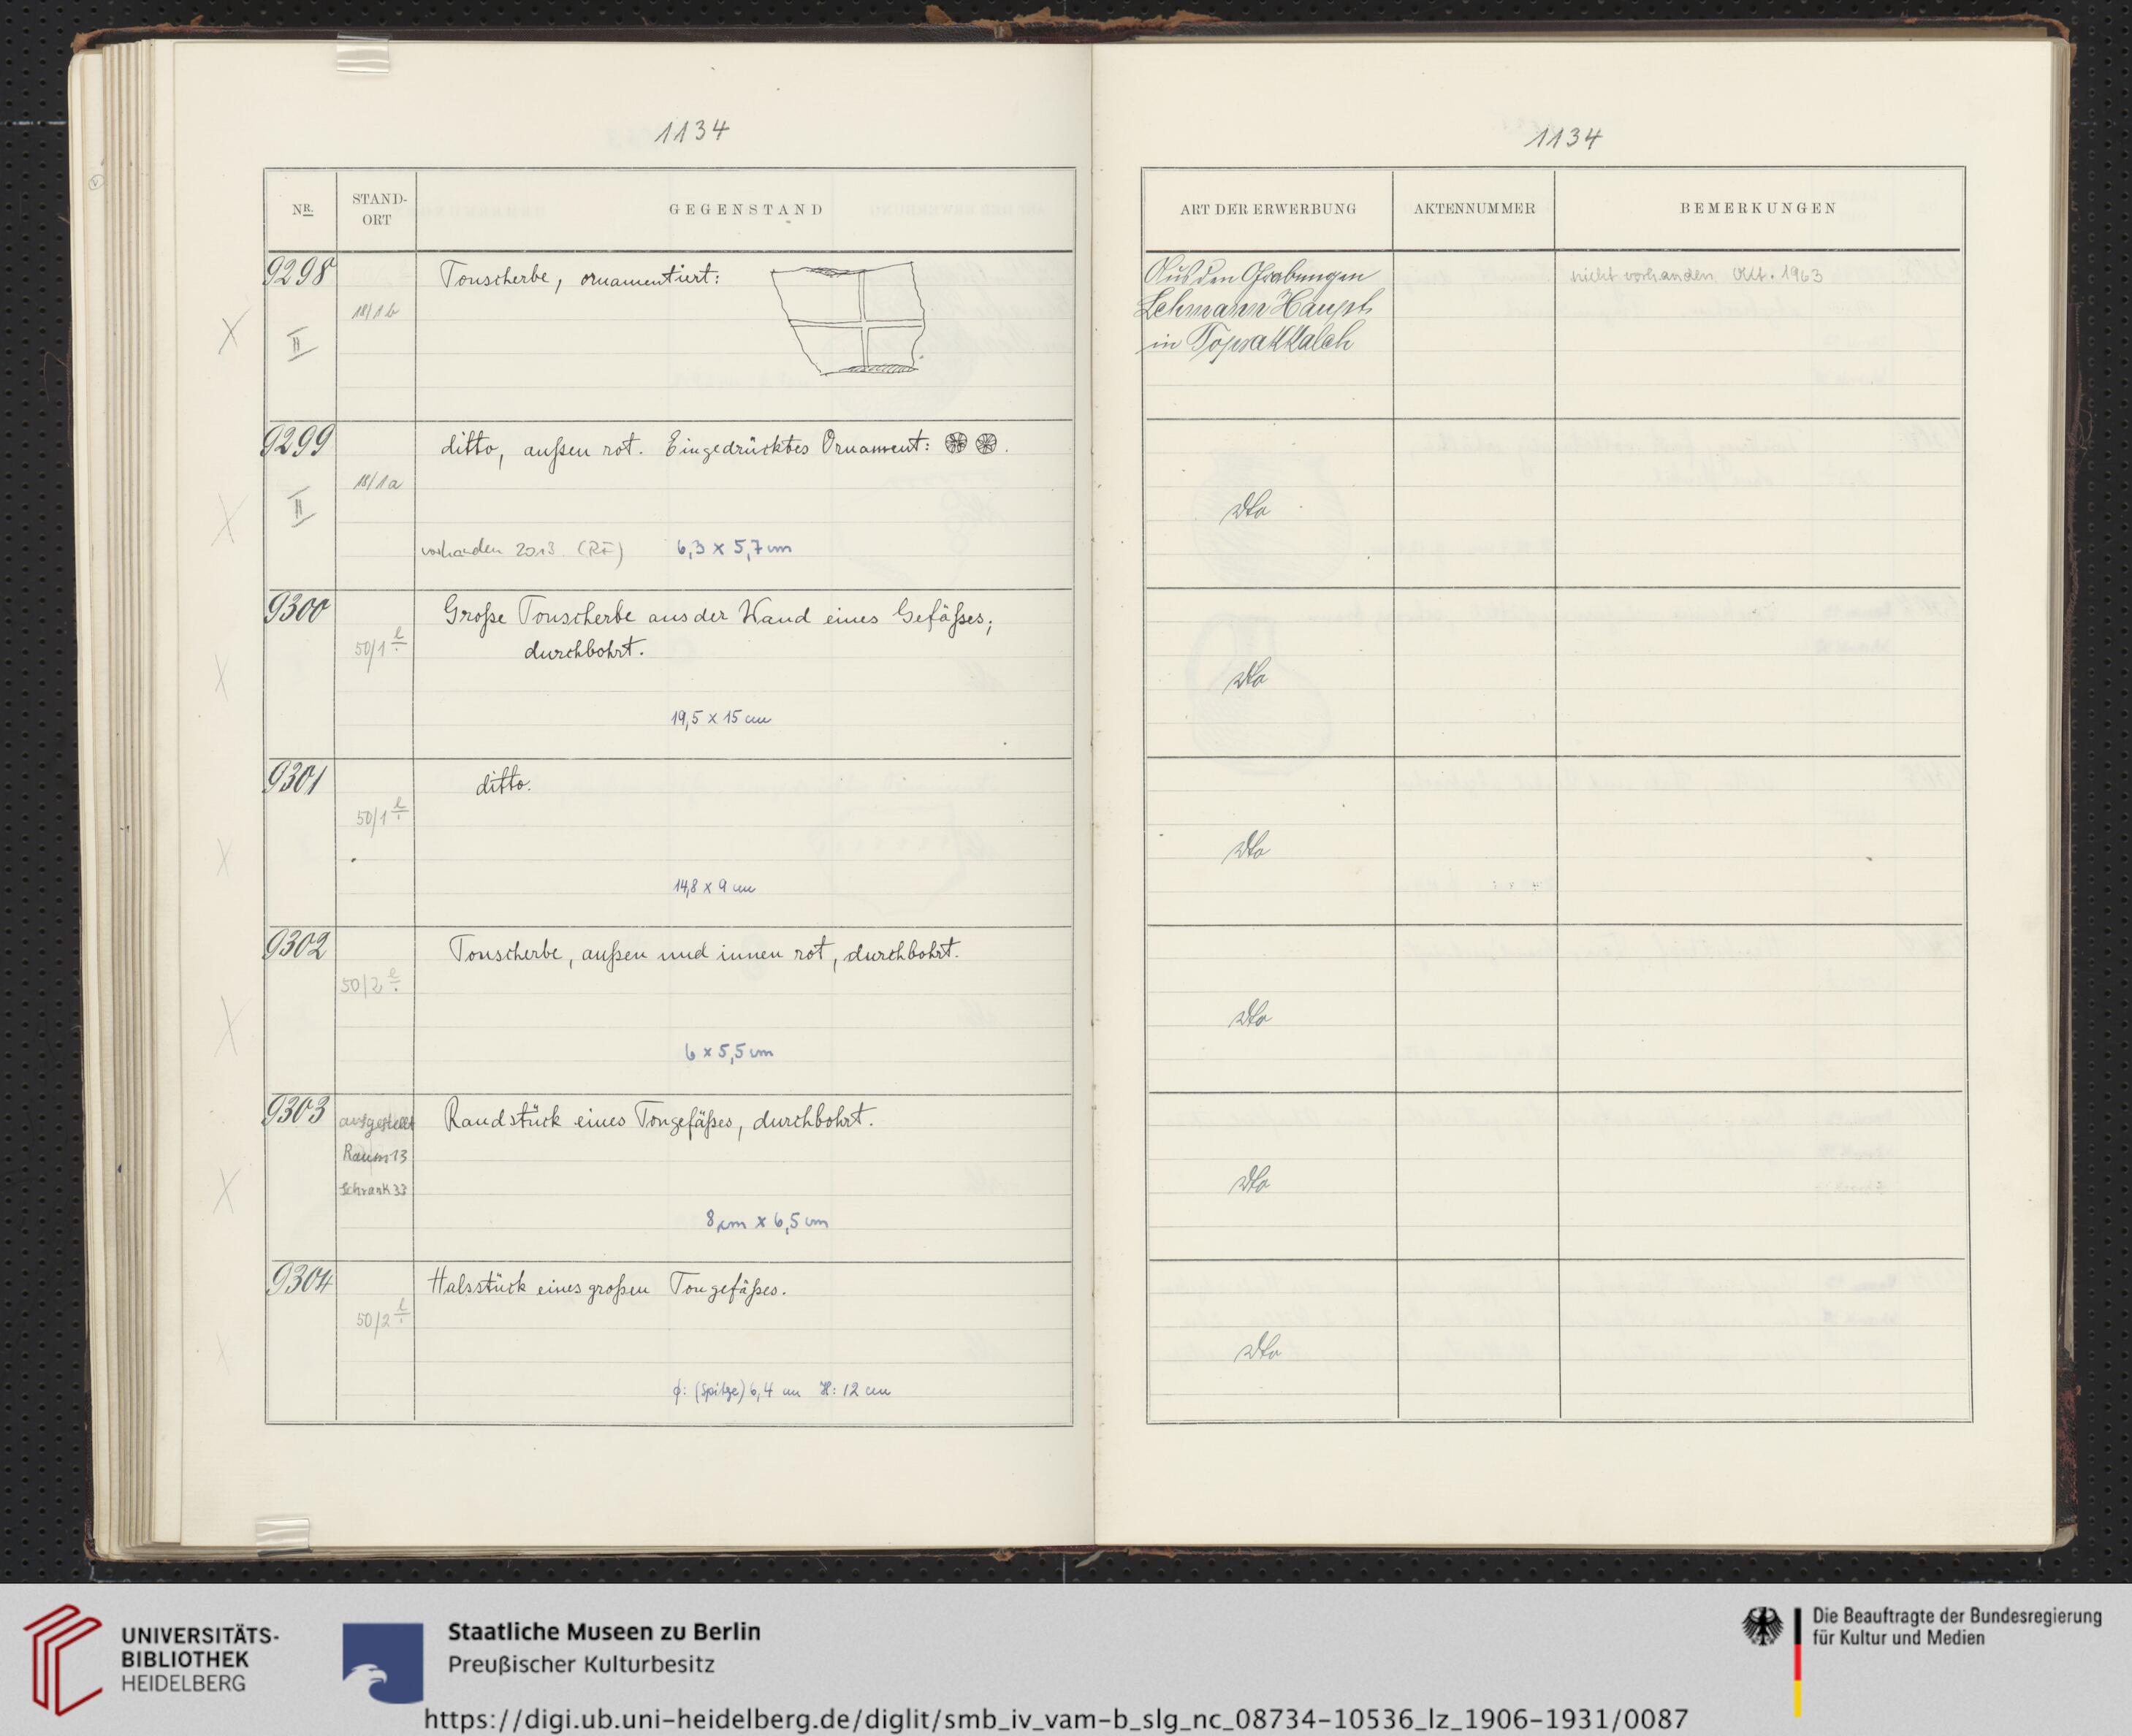 1134
NR.
STAND-
ORT
GEGENSTAND
9298
18/1b
II
Tonscherbe, ornamentiert:
9299
18/1a
II
ditto, außen rot. Eingedrücktes Ornament:
vorhanden 2013. (RF) 6,3 x 5,7 cm
9300
50/1
Große Tonscherbe aus der Wand eines Gefäßes;
durchbohrt.
19,5 x 15 cm
9301
50/1
ditto.
14,8 x 9 cm
9302
50/2
Tonscherbe, außen und innen rot, durchbohrt.
6 x 5,5 cm
9303
ausgestellt
Raum 13
Schrank 33
Randstück eines Tongefäßes, durchbohrt.
8 cm x 6,5 cm
9304
50/2
Halsstück eines großen Tongefäßes.
φ: (Spitze) 6,4 cm H: 12 cm
1134
ART DER ERWERBUNG
AKTENNUMMER
BEMERKUNGEN
Aus den Grabungen
Lehmann Haupt
in Toprakkaleh
nicht vorhanden, Okt. 1963
dto
dto
dto
dto
dto
dto
UNIVERSITÄTS-
BIBLIOTHEK
HEIDELBERG
Staatliche Museen zu Berlin
Preußischer Kulturbesitz
Die Beauftragte der Bundesregierung
für Kultur und Medien
https://digi.ub.uni-heidelberg.de/diglit/smb_iv_vam-b_slg_nc_08734-10536_lz_1906-1931/0087